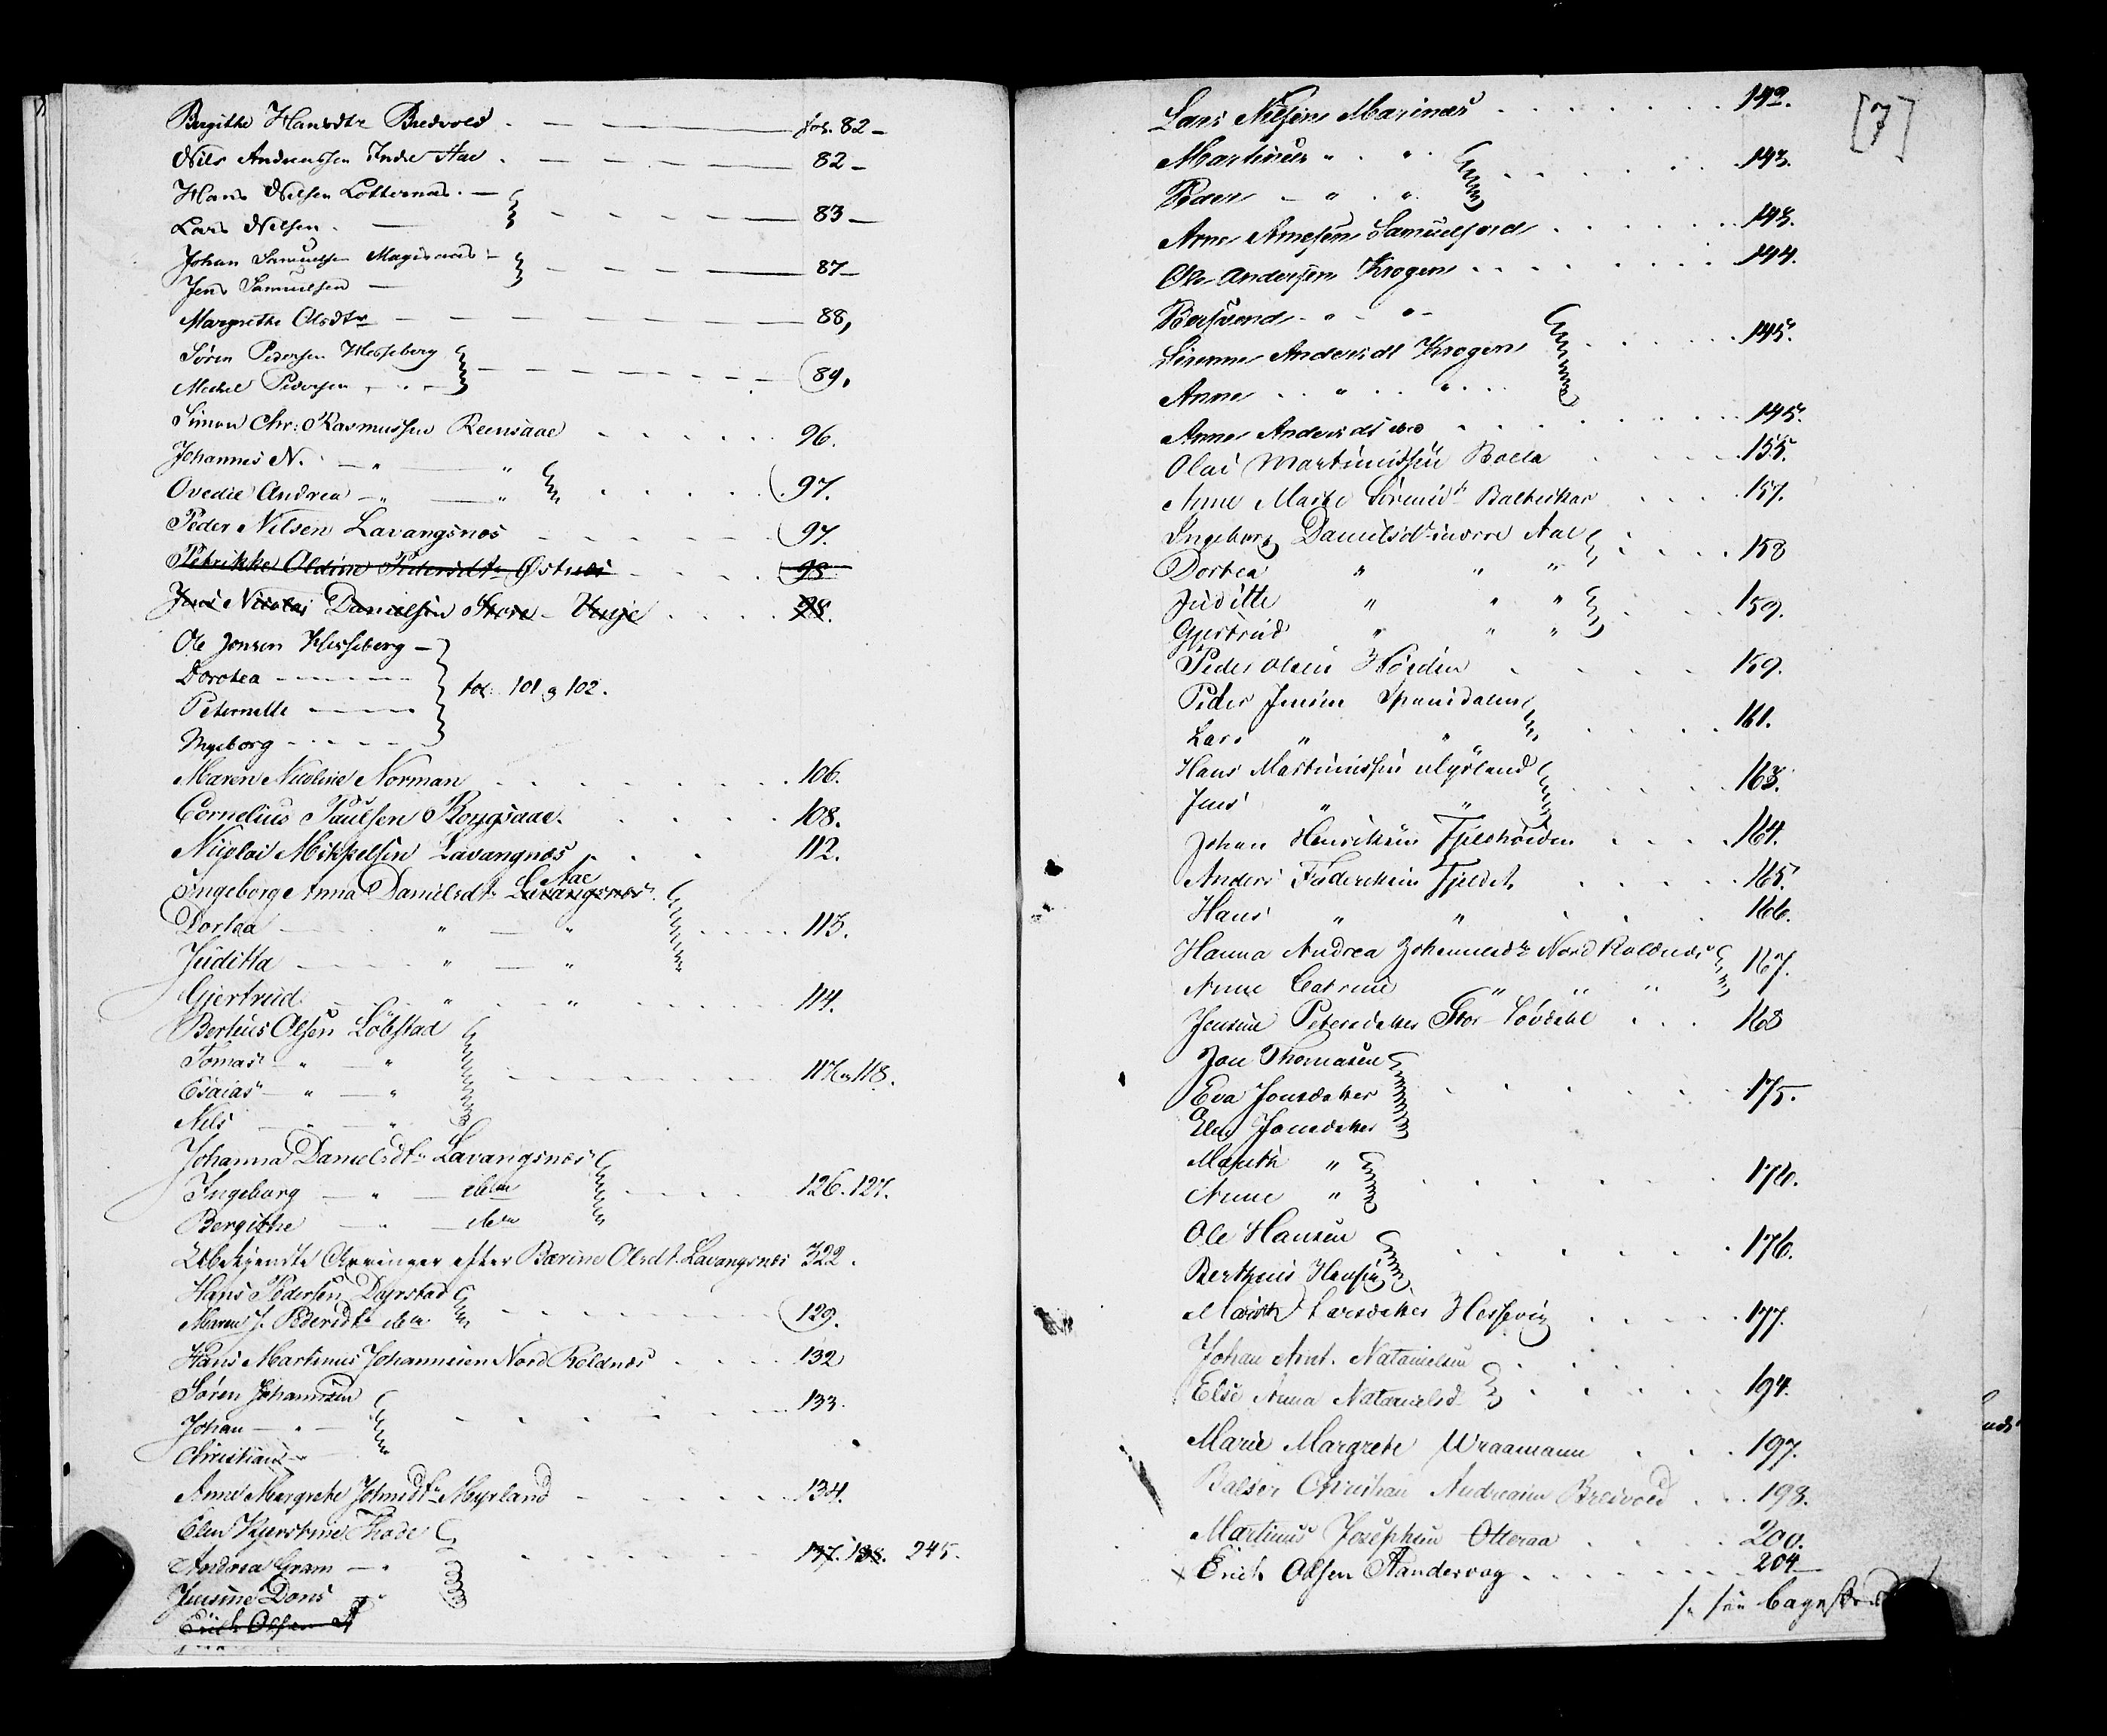 Bergithe Hansdtr Bredvold fol. 82
Nils Andreassen Indre Aae 82
Hans Nilsen Lotternæs
Lars Nilsen 83
Johan Samuelsen
Jens Samuelsen 87
Margrethe Olsdtr 88,
Søren Pedersen Hesseberg
Mickel Pedersen 89,
Simon Chr: Rasmussen Rensaae 96.
Johannes N. " "
Ovedie Andrea " " 97.
Peder Nilsen Lavangsnes 97.
Petrikke Oldine Pedersdtr Østnes 98
Jens Nicolai Danielsen Store- 98.
Ole Jonsen Hesseberg
Dorotea
Peternelle fol: 101 & 102.
Ingeborg
Maren Nicoline Norman 106.
Cornelius Paulsen 108.
Nicolai Mikkelsen Lavangnæs 112.
Aae
Ingeborg Anna Danielsdtr Lavangsnes
Dortea " " 113.
Juditha " "
Gjertrud " " 114.
Berteus Olsen Løbstad
Tomas " "
Esaias " " 117 & 118.
Nils " "
Johanna Danielsdtr Lavangsnes
Ingeborg " ibm 126. 127.
Bergithe " ibm
Ubekjendte Arvinger efter Berine Olsdt. Lavangsnes 322.
Hans Pedersen Dyrstad
Maren J. Pedersdtr ibm 129.
Hans Martinus Johannesen Nord Roldnes 132
Søren Johannesen
Johan " 133.
Christian "
Anne Margrethe Johnsdtr Myrland 134.
Elen Kjerstine Thode
Andrea Gram " 137. 138. 245.
Jensine Doris "
Erich Olsen
[7]
Lars Nilsen Marinæs 142.
Martinus " "
Peder " " 143.
Arne Arnesen 143.
Ole Andersen Krogen 144.
Bersvend " "
Sirenne Andersdt Krogen 145.
Anne " "
Anne Andersdt ibid 145.
Olai Martinussen Bolla 155.
Anne Marie Sørensdtr Balteskar 157.
Ingeborg Danielsdt indre Aae
Dortea " " " 158
Juditte " " "
Gjertrud " " " 159.
Peder Olsen 159.
Peder Jensen Spansdalen
Lars " " 161.
Hans Martinussen Myrland
Jens " " 163.
Johan Henriksen Fjeldhøiden 164.
Anders Frederiksen Fjeldet 165.
Hans " " 166.
Hanna Andrea Johannesdtr Nord Roldnæs
Anne Catrine " " " 167.
Jensine Petersdatter Stor- 168
Jon Thomasen
Eva Jonsdatter 175.
Elen Jonsdatter
Marith "
Anne " 176.
Ole Hansen
Bertheus Hansen 176.
Marith Larsdatter Hessevig 177.
Johan Ant. Natanielsen
Else Anna Natanielsd 194.
Marie Margrete Wraamann 197.
Balser Christian Andreasen Breivold 198.
Martinus Josephsen Otteraa 200.
x Erich Olsen Sandervog 204